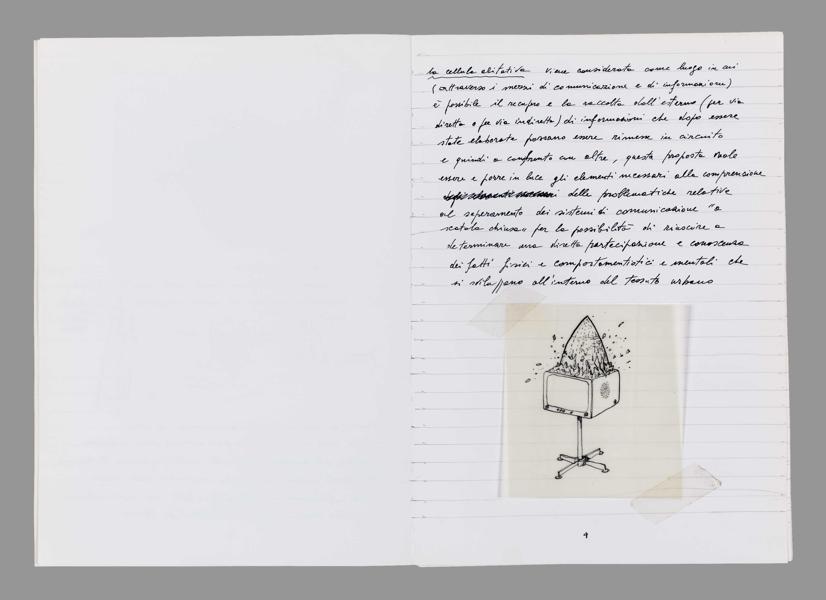 la cellula abitativa viene considerata come luogo in cui
(attraverso i mezzi di comunicazione e di informazione)
è possibile il recupero e la raccolta dall'esterno (per via
diretta o per via indiretta) di informazioni che dopo essere
state elaborate possano essere rimesse in circuito
e quindi a confronto con altre, questa proposta vuole
essere e porre in luce gli elementi necessari alla comprensione
delle problematiche relative
al superamento dei sistemi di comunicazione "a
scatola chiusa" per la possibilità di riuscire a
determinare una diretta partecipazione e conoscenza
dei fatti fisici e comportamentistici e mentali che
si sviluppano all'interno del tessuto urbano